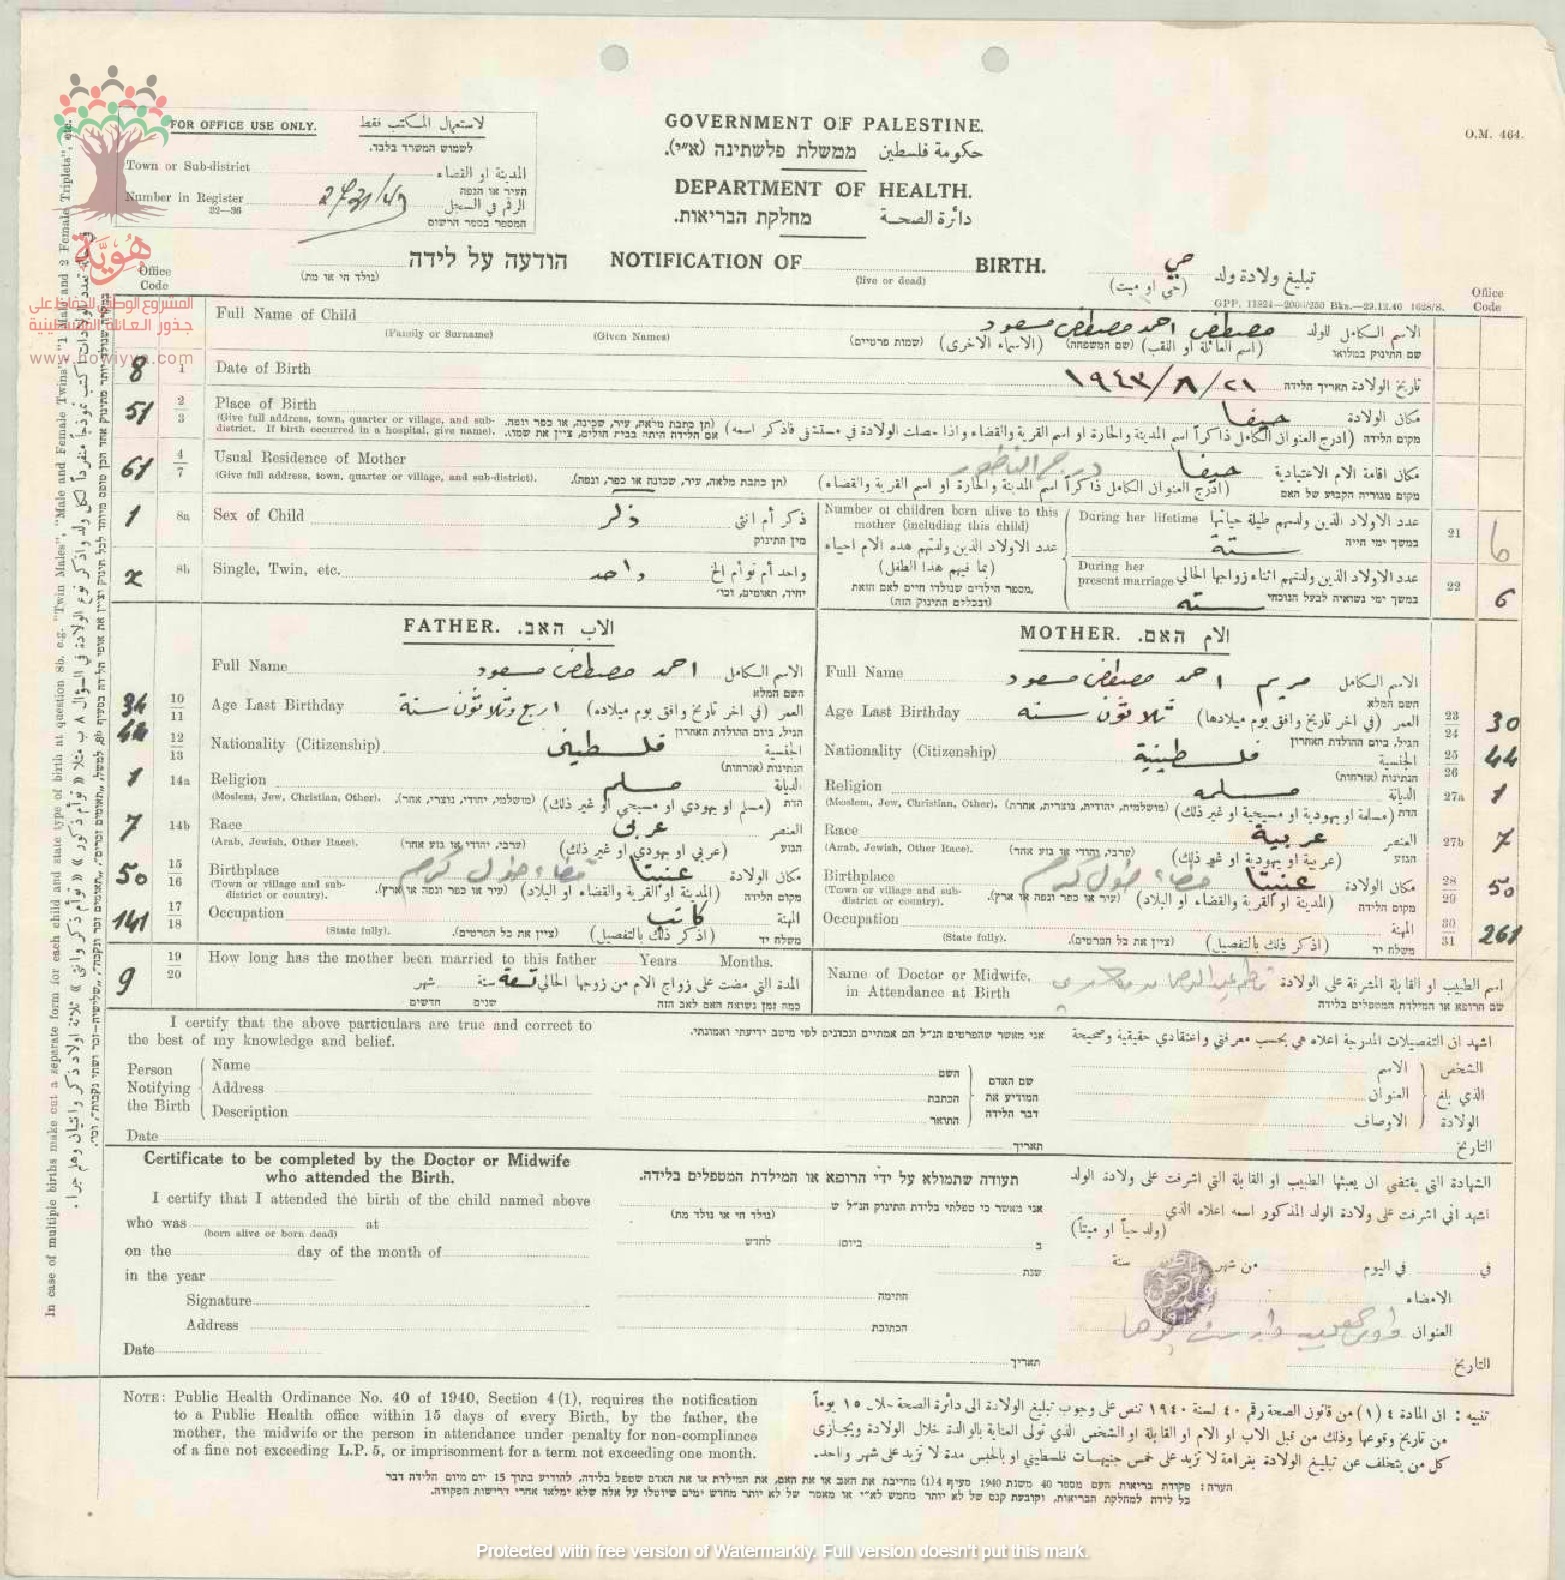 FOR OFFICE USE ONLY. لاستعمال المكتب فقط
לשמוש המשרד בלבד.
Town or Sub-district المدينة او القضاء
העיר או הנפה
Number in Register الرقم في السجل
22—36
המספר בספר הרשום
GOVERNMENT OF PALESTINE.
حكومة فلسطين ממשלת פלשתינה (א"י).
DEPARTMENT OF HEALTH.
دائرة الصحة מחלקת הבריאות.
O.M. 464.
הודעה על לידה NOTIFICATION OF BIRTH. حي تبليغ ولادة ولد
(בולד חי או מת) (live or dead) (حي او ميت)
GPP. 11824—2000/250 Bks.—29.12.40 1628/8.
هوية
المشروع الوطني للحفاظ على
جذور العائلة الفلسطينية
www.howiyya.com
Office Code
Office Code
Full Name of Child مصطفى احمد مصطفى مسعود الاسم الكامل للولد
(Family or Surname) (Given Names) (שמות פרטיים) (الاسماء الاخرى) (שם המשפחה) (اسم العائلة او اللقب) שם התינוק במלואו
8 1 Date of Birth ١٩٤٣/٨/٢١ تاريخ الولادة תאריך הלידה
51 2 3 Place of Birth حيفا مكان الولادة
(Give full address, town, quarter or village, and sub-
district. If birth occurred in a hospital, give name).
מקום הלידה
61 4 7 Usual Residence of Mother حيفا مكان اقامة الام الاعتيادية
(Give full address, town, quarter or village, and sub-district). (תן כתבת מלאה, עיר, שכונה או כפר, ונפה). (ادرج العنوان الكامل ذاكراً اسم المدينة والحارة او اسم القرية والقضاء) מקום מגוריה הקבוע של האם
1 8a Sex of Child ذكر ذكر أم انثى
מין התינוק
x 8b Single, Twin, etc. واحد واحد أم توأم الخ
יחיד, תאומים, וכו'
Number of children born alive to this
mother (including this child)
عدد الاولاد الذين ولدتهم هذه الام احياء
(بما فيهم هذا الطفل)
מספר הילדים שנולדו חיים לאם הזאת
(ובכללם התינוק הזה)
During her lifetime ستة عدد الاولاد الذين ولدتهم طيلة حياتها 21
במשך ימי חייה
During her
present marriage ستة عدد الاولاد الذين ولدتهم اثناء زواجها الحالي 22 6
במשך ימי נשואיה לבעל הנוכחי
FATHER. האב. الاب
Full Name احمد مصطفى مسعود الاسم الكامل
השם המלא
34 10 11 Age Last Birthday اربع وثلاثون سنة العمر (في اخر تاريخ وافق يوم ميلاده)
הגיל, ביום ההולדת האחרון
44 12 13 Nationality (Citizenship) فلسطيني الجنسية
הנתינות (אזרחות)
1 14a Religion مسلم الديانة
(Moslem, Jew, Christian, Other). (מושלמי, יהודי, נוצרי, אחר). (مسلم او يهودي او مسيحي او غير ذلك) הדת
7 14b Race عربي العنصر
(Arab, Jewish, Other Race). (ערבי, יהודי או גזע אחר) (عربي او يهودي او غير ذلك) הגזע
50 15 16 Birthplace عنبتا قضاء طول كرم مكان الولادة
(Town or village and sub-
district or country). (עיר או כפר ונפה או ארץ). (المدينة او القرية والقضاء او البلاد) מקום הלידה
141 17 18 Occupation كاتب المهنة
(State fully). (ציין את כל הפרטים). (اذكر ذلك بالتفصيل) משלח יד
9 19 20 How long has the mother been married to this father Years Months.
المدة التي مضت على زواج الام من زوجها الحالي تسعة سنة شهر
כמה זמן נשואה האם לאב הזה שנים חדשים
MOTHER. האם. الام
Full Name مريم احمد مصطفى مسعود الاسم الكامل
השם המלא
Age Last Birthday ثلاثون سنة العمر (في اخر تاريخ وافق يوم ميلادها) 23 24 30
הגיל, ביום ההולדת האחרון
Nationality (Citizenship) فلسطينية الجنسية 25 26 44
הנתינות (אזרחות)
Religion مسلمة الديانة 27a 1
(Moslem, Jew, Christian, Other). (מושלמית, יהודית, נוצרית, אחרת). (مسلمة او يهودية او مسيحية او غير ذلك) הדת
Race عربية العنصر 27b 7
(Arab, Jewish, Other Race). (ערבי, יהודי או גזע אחר) (عربية او يهودية او غير ذلك) הגזע
Birthplace عنبتا قضاء طول كرم مكان الولادة 28 29 50
(Town or village and sub-
district or country). (עיר או כפר ונפה או ארץ). (المدينة او القرية والقضاء او البلاد) מקום הלידה
Occupation المهنة 30 31 261
(State fully). (ציין את כל הפרטים). (اذكر ذلك بالتفصيل) משלח יד
Name of Doctor or Midwife,
in Attendance at Birth
اسم الطبيب او القابلة المشرفة على الولادة
שם הרופא או המילדת המטפלים בלידה
I certify that the above particulars are true and correct to
the best of my knowledge and belief.
אני מאשר שהפרטים הנ"ל הם אמתיים ונכונים לפי מיטב ידיעתי ואמונתי.
اشهد ان التفصيلات المدرجة اعلاه هي بحسب معرفتي واعتقادي حقيقية وصحيحة
Person
Notifying
the Birth
Name
Address
Description
Date
השם
הכתבת
התואר
תאריך
שם האדם
המודיע את
דבר הלידה
الاسم
العنوان
الاوصاف
الشخص
الذي بلغ
الولادة
التاريخ
Certificate to be completed by the Doctor or Midwife
who attended the Birth.
I certify that I attended the birth of the child named above
who was at
(born alive or born dead)
on the day of the month of
in the year
Signature
Address
Date
תעודה שתמולא על ידי הרופא או המילדת המטפלים בלידה.
אני מאשר כי טפלתי בלידת התינוק הנ"ל ש
(נולד חי או נולד מת)
ב ביום לחדש
שנת
חתימה
הכתובת
תאריך
الشهادة التي يقتضي ان يعبئها الطبيب او القابلة التي اشرفت على ولادة الولد
اشهد اني اشرفت على ولادة الولد المذكور اسمه اعلاه الذي
(ولد حياً او ميتاً)
في في اليوم من شهر سنة
الامضاء
العنوان
التاريخ
NOTE: Public Health Ordinance No. 40 of 1940, Section 4(1), requires the notification
to a Public Health office within 15 days of every Birth, by the father, the
mother, the midwife or the person in attendance under penalty for non-compliance
of a fine not exceeding L.P. 5, or imprisonment for a term not exceeding one month.
تنبيه : ان المادة ٤ (١) من قانون الصحة رقم ٤٠ لسنة ١٩٤٠ تنص على وجوب تبليغ الولادة الى دائرة الصحة خلال ١٥ يوماً
من تاريخ وقوعها وذلك من قبل الاب او الام او القابلة او الشخص الذي تولى العناية بالوالدة خلال الولادة ويجازى
كل من يتخلف عن تبليغ الولادة بغرامة لا تزيد على خمس جنيهات فلسطيني او بالحبس مدة لا تزيد على شهر واحد.
הערה: פקודת בריאות העם מספר 40 משנת 1940 סעיף 4(1) מחייבת את האב או את האם, את המילדת או את האדם שטפל בלידה, להודיע בתוך 15 יום מיום הלידה דבר
כל לידה למחלקת הבריאות, וקובעת קנס של לא יותר מחמש לא"י או מאסר של לא יותר מחדש ימים שיוטלו על אלה שלא ימלאו אחרי דרישות הפקודה.
In case of multiple births make out a separate form for each child and state type of birth at question 8b, e.g. "Twin Males", "Male and Female Twins", "1 Male and 2 Female Triplets", etc.
Protected with free version of Watermarkly. Full version doesn't put this mark.